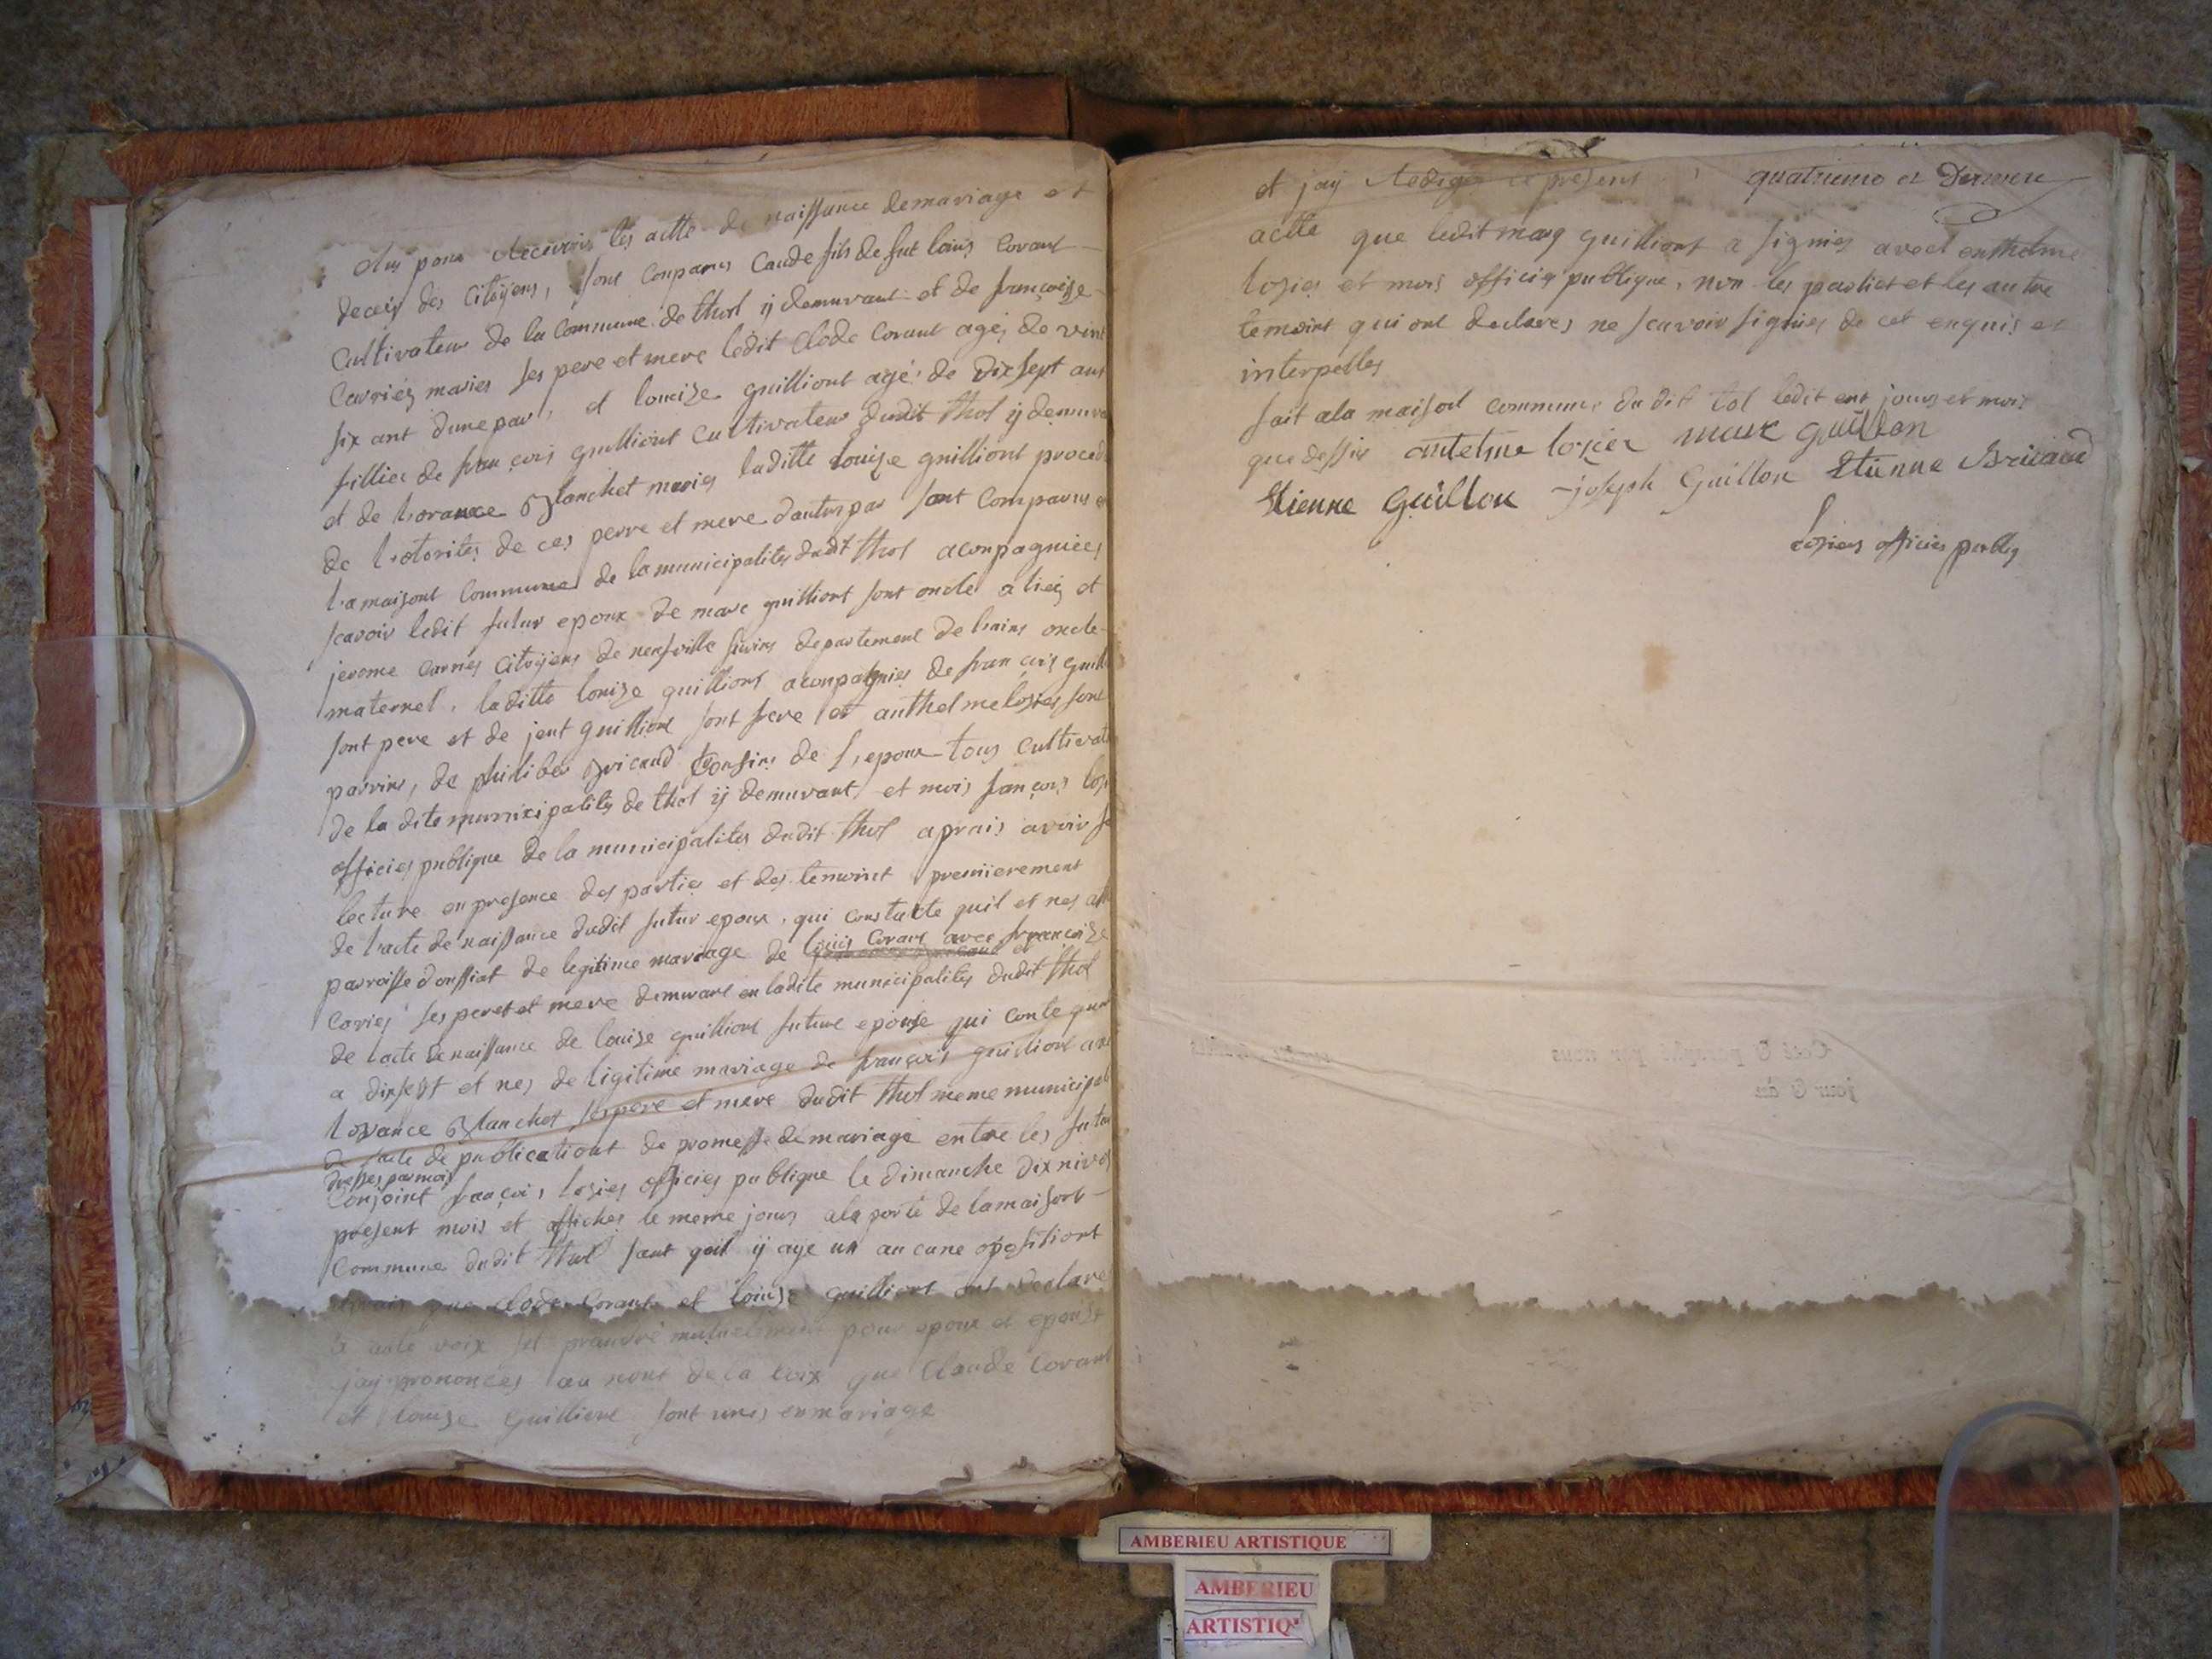 elus pour Recevoirs les actte de naissance demariage et
deceis des Citoijens, sont Conparus Caude fils de fut louis Corant
Cultivateur de la Commune de thol ij demuvant et de françoize
Carriéz mariés ses pere et mere ledit Clode Corant agés de vint
six ant dune par, et louize guilliont agé de dix sept ant
filliee de françois guilliont Cultivateur dudit thol ij demuvant
et de Lorance Blanchet mariés laditte louize guilliont proced
de l'otorites de ces perre et mere dautre par sont Comparus
la maisont Commune de la municipalites dudit thol aconpagniees
scavoir ledit futur epoux de marc guilliont sont oncle a liés et
jerome Carries Citoijens de neufville suivins departement de lains oncle
maternel, laditte louize guilliont aconpagnies de françois guilli
sont pere et de jent guilliont sont frere et anthelme losies sont
parrins, de philiber Bricaud Consins de l,epoux tous Cultivat
de la dite municipalites de thol ij demuvant et mois françois losi
officies publique de la municipalites dudit thol aprais avoir f
lecture en presence des parties et des temoint premiierement
de l'acte de naissance dudit futur epoux, qui constatte quil et nes
parroisse d'oussiat de legitime mariage de louis Corant avec françoize
Cariés ses peret et mere demuvant en ladite municipalites dudit thol
de l'acte de naissance de louize guilliont future epouse qui conte que
a dixsept et nes de ligitime mariage de françois guilliont ave
lorance Blanchet ses pere et mere dudit thol meme municipal
de l'acte de publicationt de promesse demariage entre les futur
dresses par mois
Conjoint françois losies officies publique le dimanche dix nivos
present mois et affiches le meme jours ala porte de lamaisont
Commune dudit thol sant quil ij aye un aucune opositiont
que Clode Corant et louise guilliont ont declare
a aute voix set prandre mutuelement pour epoux et epouse
jay prononces au nont de la loix que Claude Corant
et louize guilliont sont unis en mariage
quatrieme et Derniere
et jay Rediges ce present
actte que ledit marq guilliont a signies avect anthelme
losies et mois officies publique, non les parties et les autre
temoint qui ont declares ne scavoir signies de cet enquis et
interpelles
fait ala maisont commune du dit tol ledit ent jours et mois
que dessus antelme losier marc guillon
Etienne Guillon joseph Guillon Etienne Bricaud
losies officies publiq
AMBERIEU ARTISTIQUE
AMBERIEU
ARTISTIQ